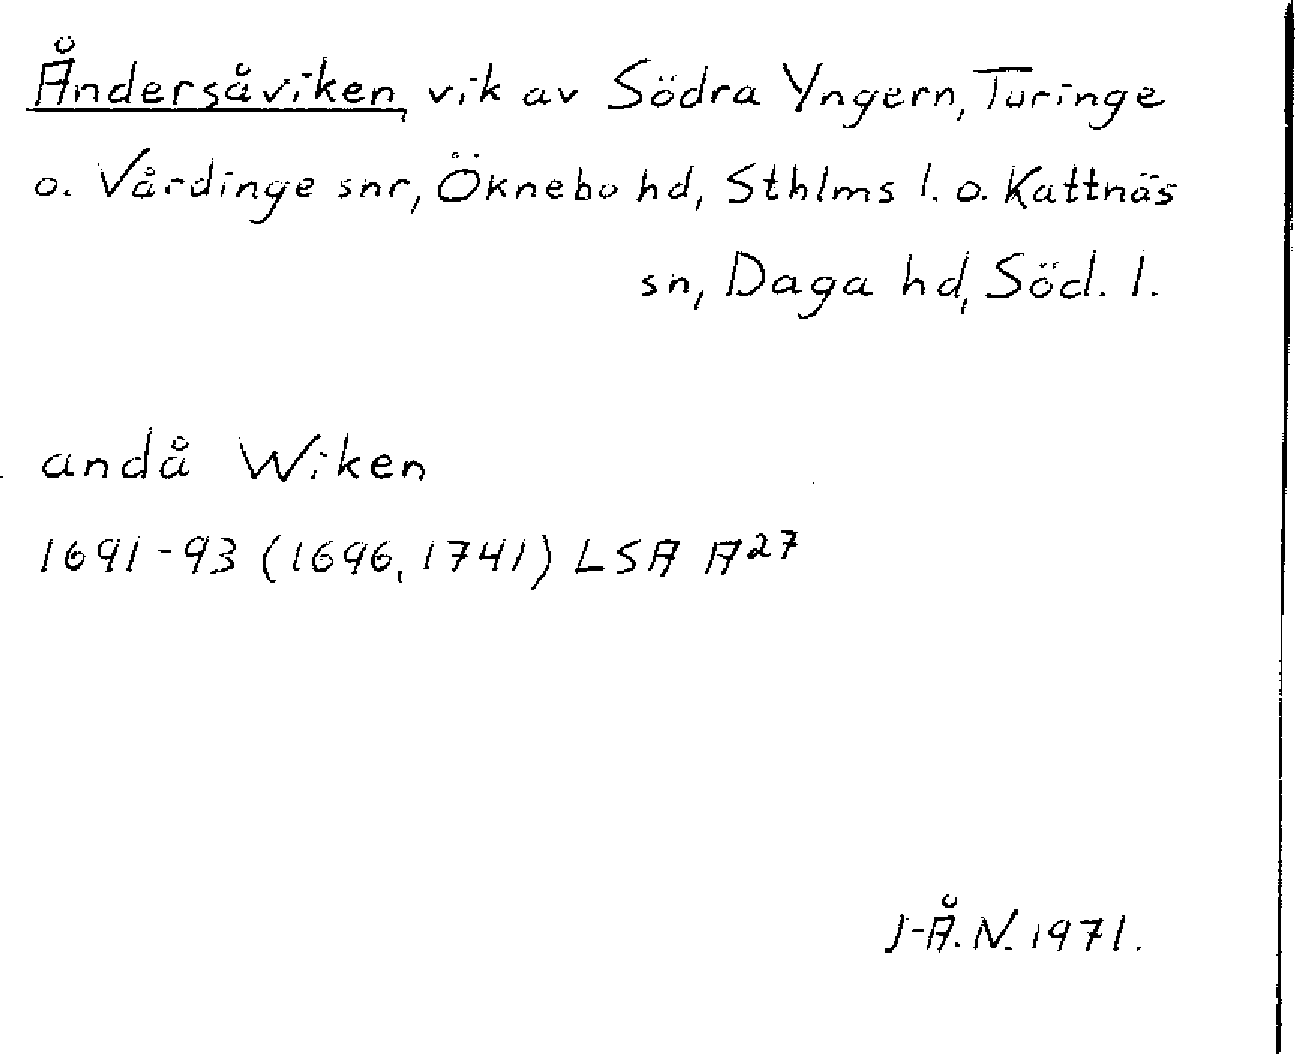 Åndersåviken, vik av Södra Yngern, Turinge
o. Vårdinge snr, Öknebo hd, Sthlms l. o. Kattnäs
sn, Daga hd, Söd. l.
andå Wiken
1691-93 (1696, 1741) LSA A27
J-Å. N. 1971.